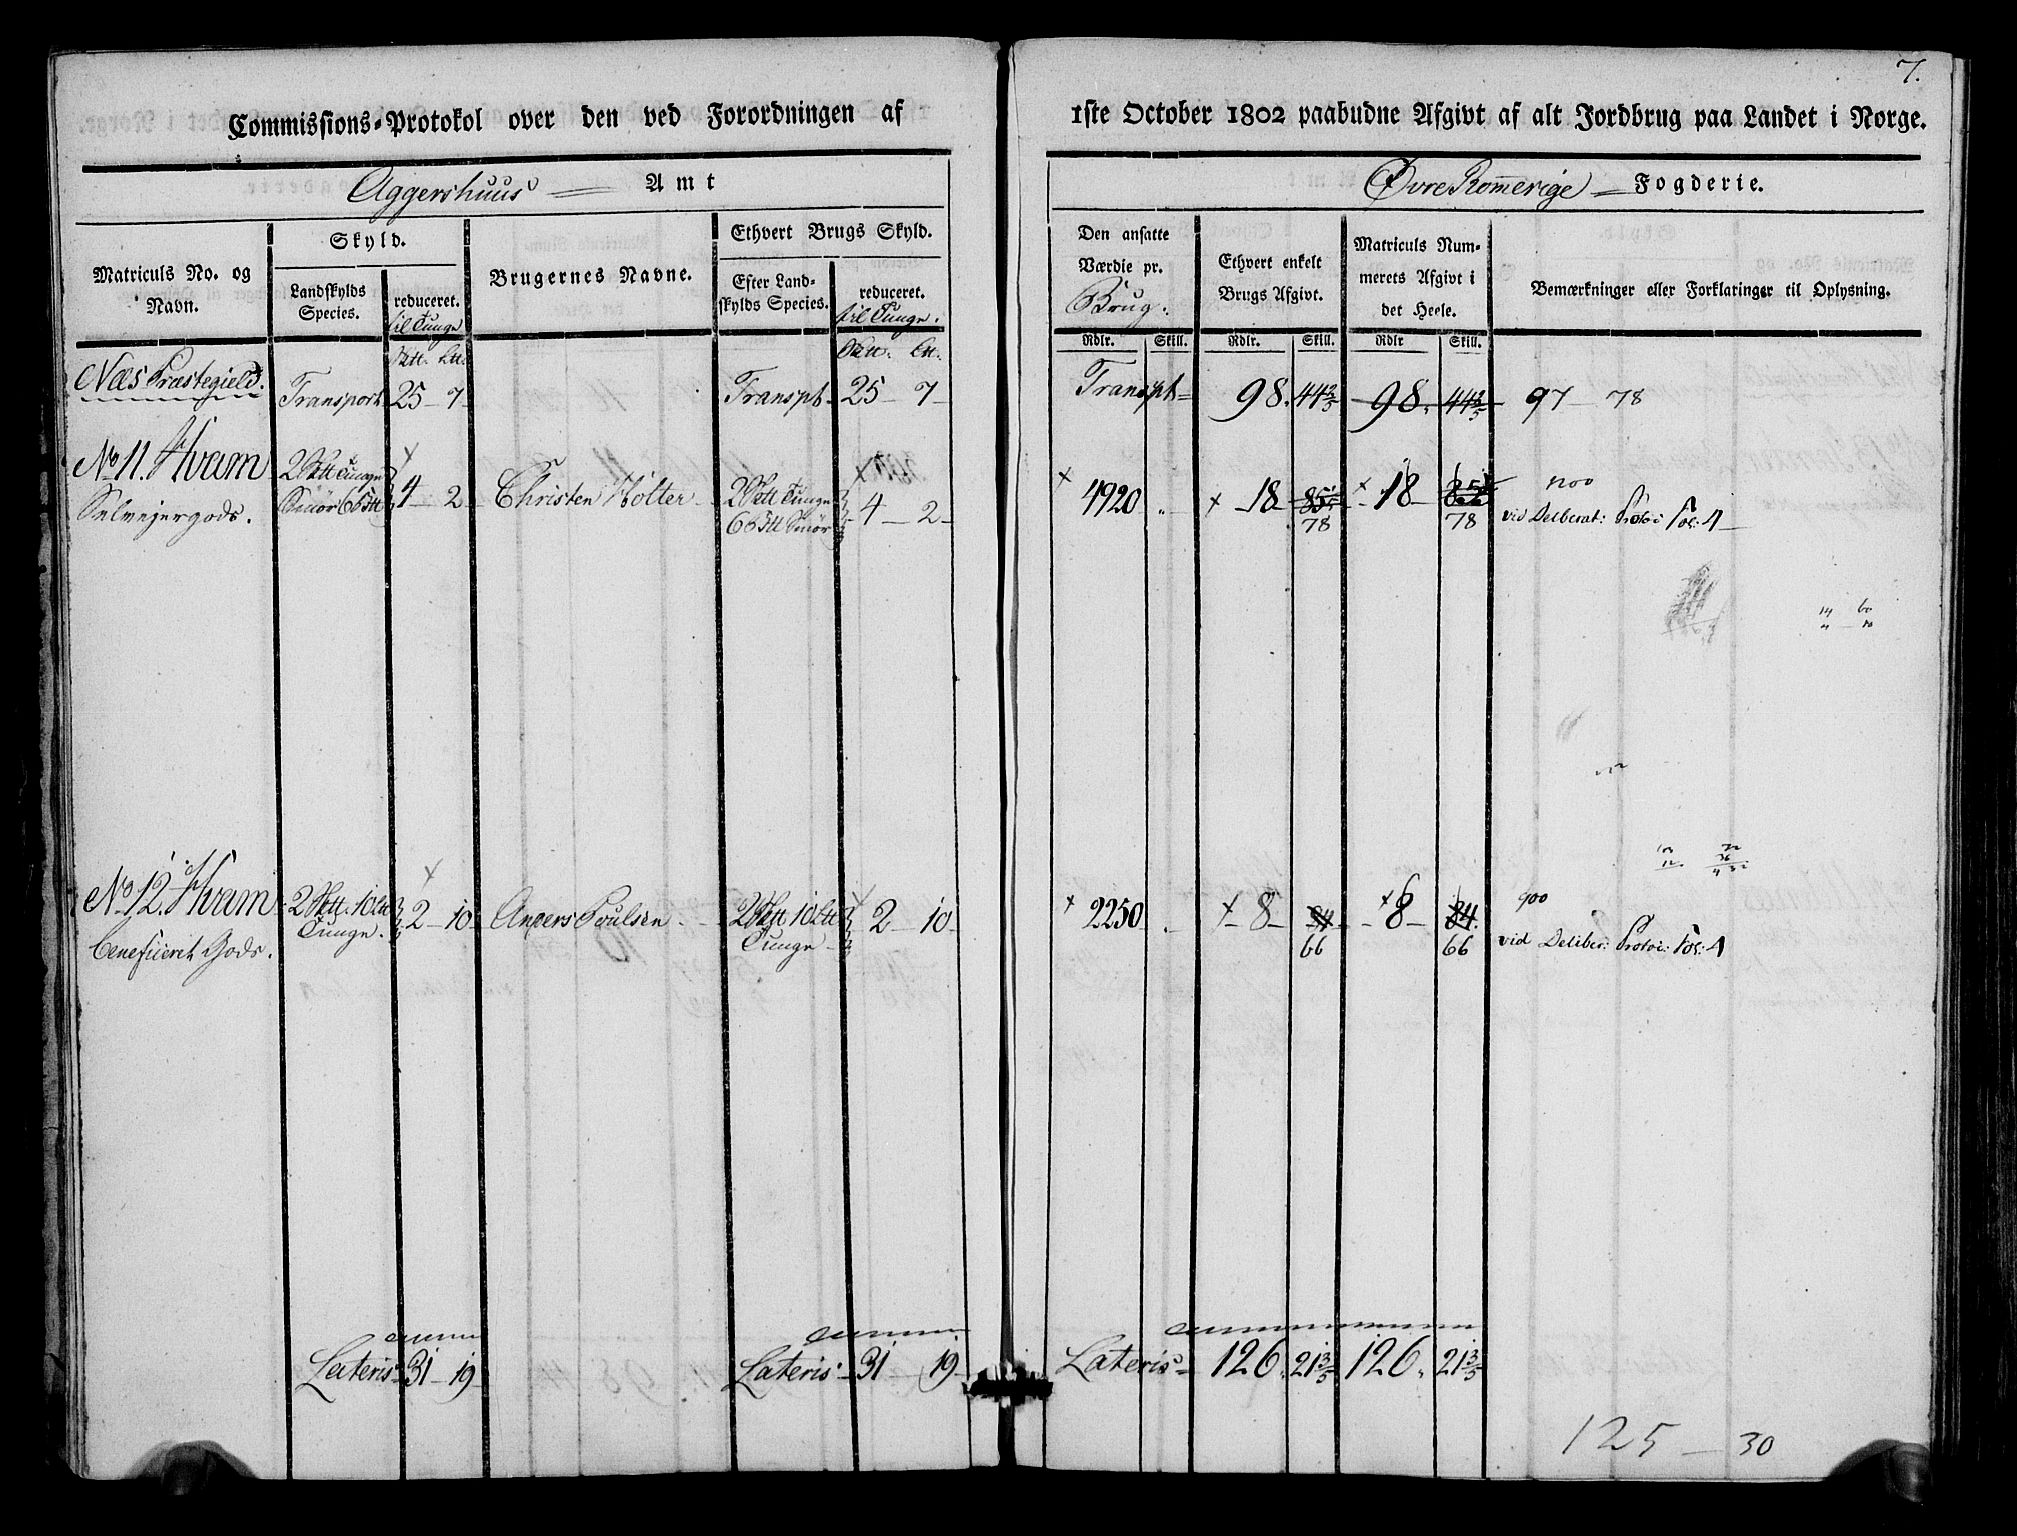 7.
Commissions-Protokol over den ved Forordningen af 1ste October 1802 paabudne Afgivt af alt Jordbrug paa Landet i Norge.
Aggershuus Amt
Øvre Romerige Fogderie.
Matriculs No. og Navn.
Skyld.
Landskylds Species.
reduceret. til Tunge
Brugernes Navne.
Ethvert Brugs Skyld.
Efter Landskylds Species.
reduceret. til Tunge.
Den ansatte Værdie pr. Brug.
Ethvert enkelt Brugs Afgivt.
Matriculs Nummerets Afgivt i det Heele.
Bemærkninger eller Forklaringer til Oplysning.
Rdlr. Skill. Rdlr. Skill. Rdlr Skill.
Næs Præstegield. Transport 25 - 7 - Transpt. 25 - 7 - Transpt 98. 44 2/5 98. 44 2/5 97 78
No 11. Hvam 2 Tunge 4 - 2 - Christen Holter 2 Tunge 4 - 2 - 4920 18 18
Selvejergods. Smør 78 78 vid Delberat: Protoc: Fol: 4
No 12. Hvam 2 10 Tunge. 2 - 10 - Anders Poulsen 2 10 Tunge 2 - 10 - 2250 8 84 8 84 900
Beneficeret Gods. 66 66 vid Deliber: Protoc: Fol: 4
Lateris 31 - 19 - Lateris 31 - 19 - Lateris 126. 21 3/5 126. 21 3/5
125 - 30